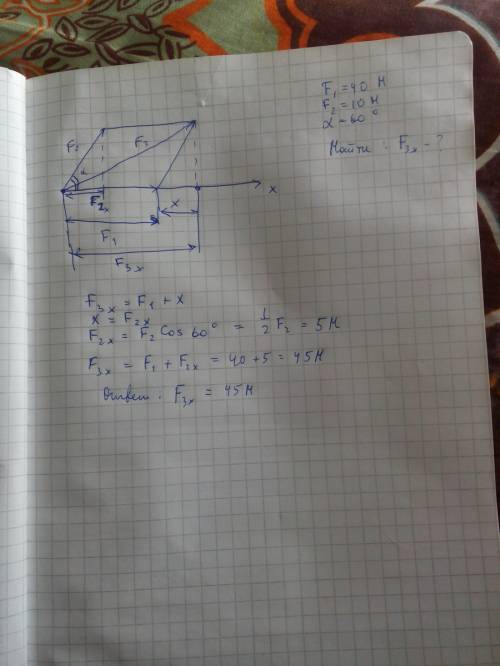 F₁ = 40 Н
F₂ = 10 Н
α - 60°
Найти : F₃ₓ - ?
F₂
F₃
α
F₂ₓ
x
x
F₁
F₃ₓ
F₃ₓ = F₁ + x
x = F₂ₓ
F₂ₓ = F₂ Cos 60° = 1/2 F₂ = 5 Н
F₃ₓ = F₁ + F₂ₓ = 40 + 5 = 45 Н
Ответ : F₃ₓ = 45 Н